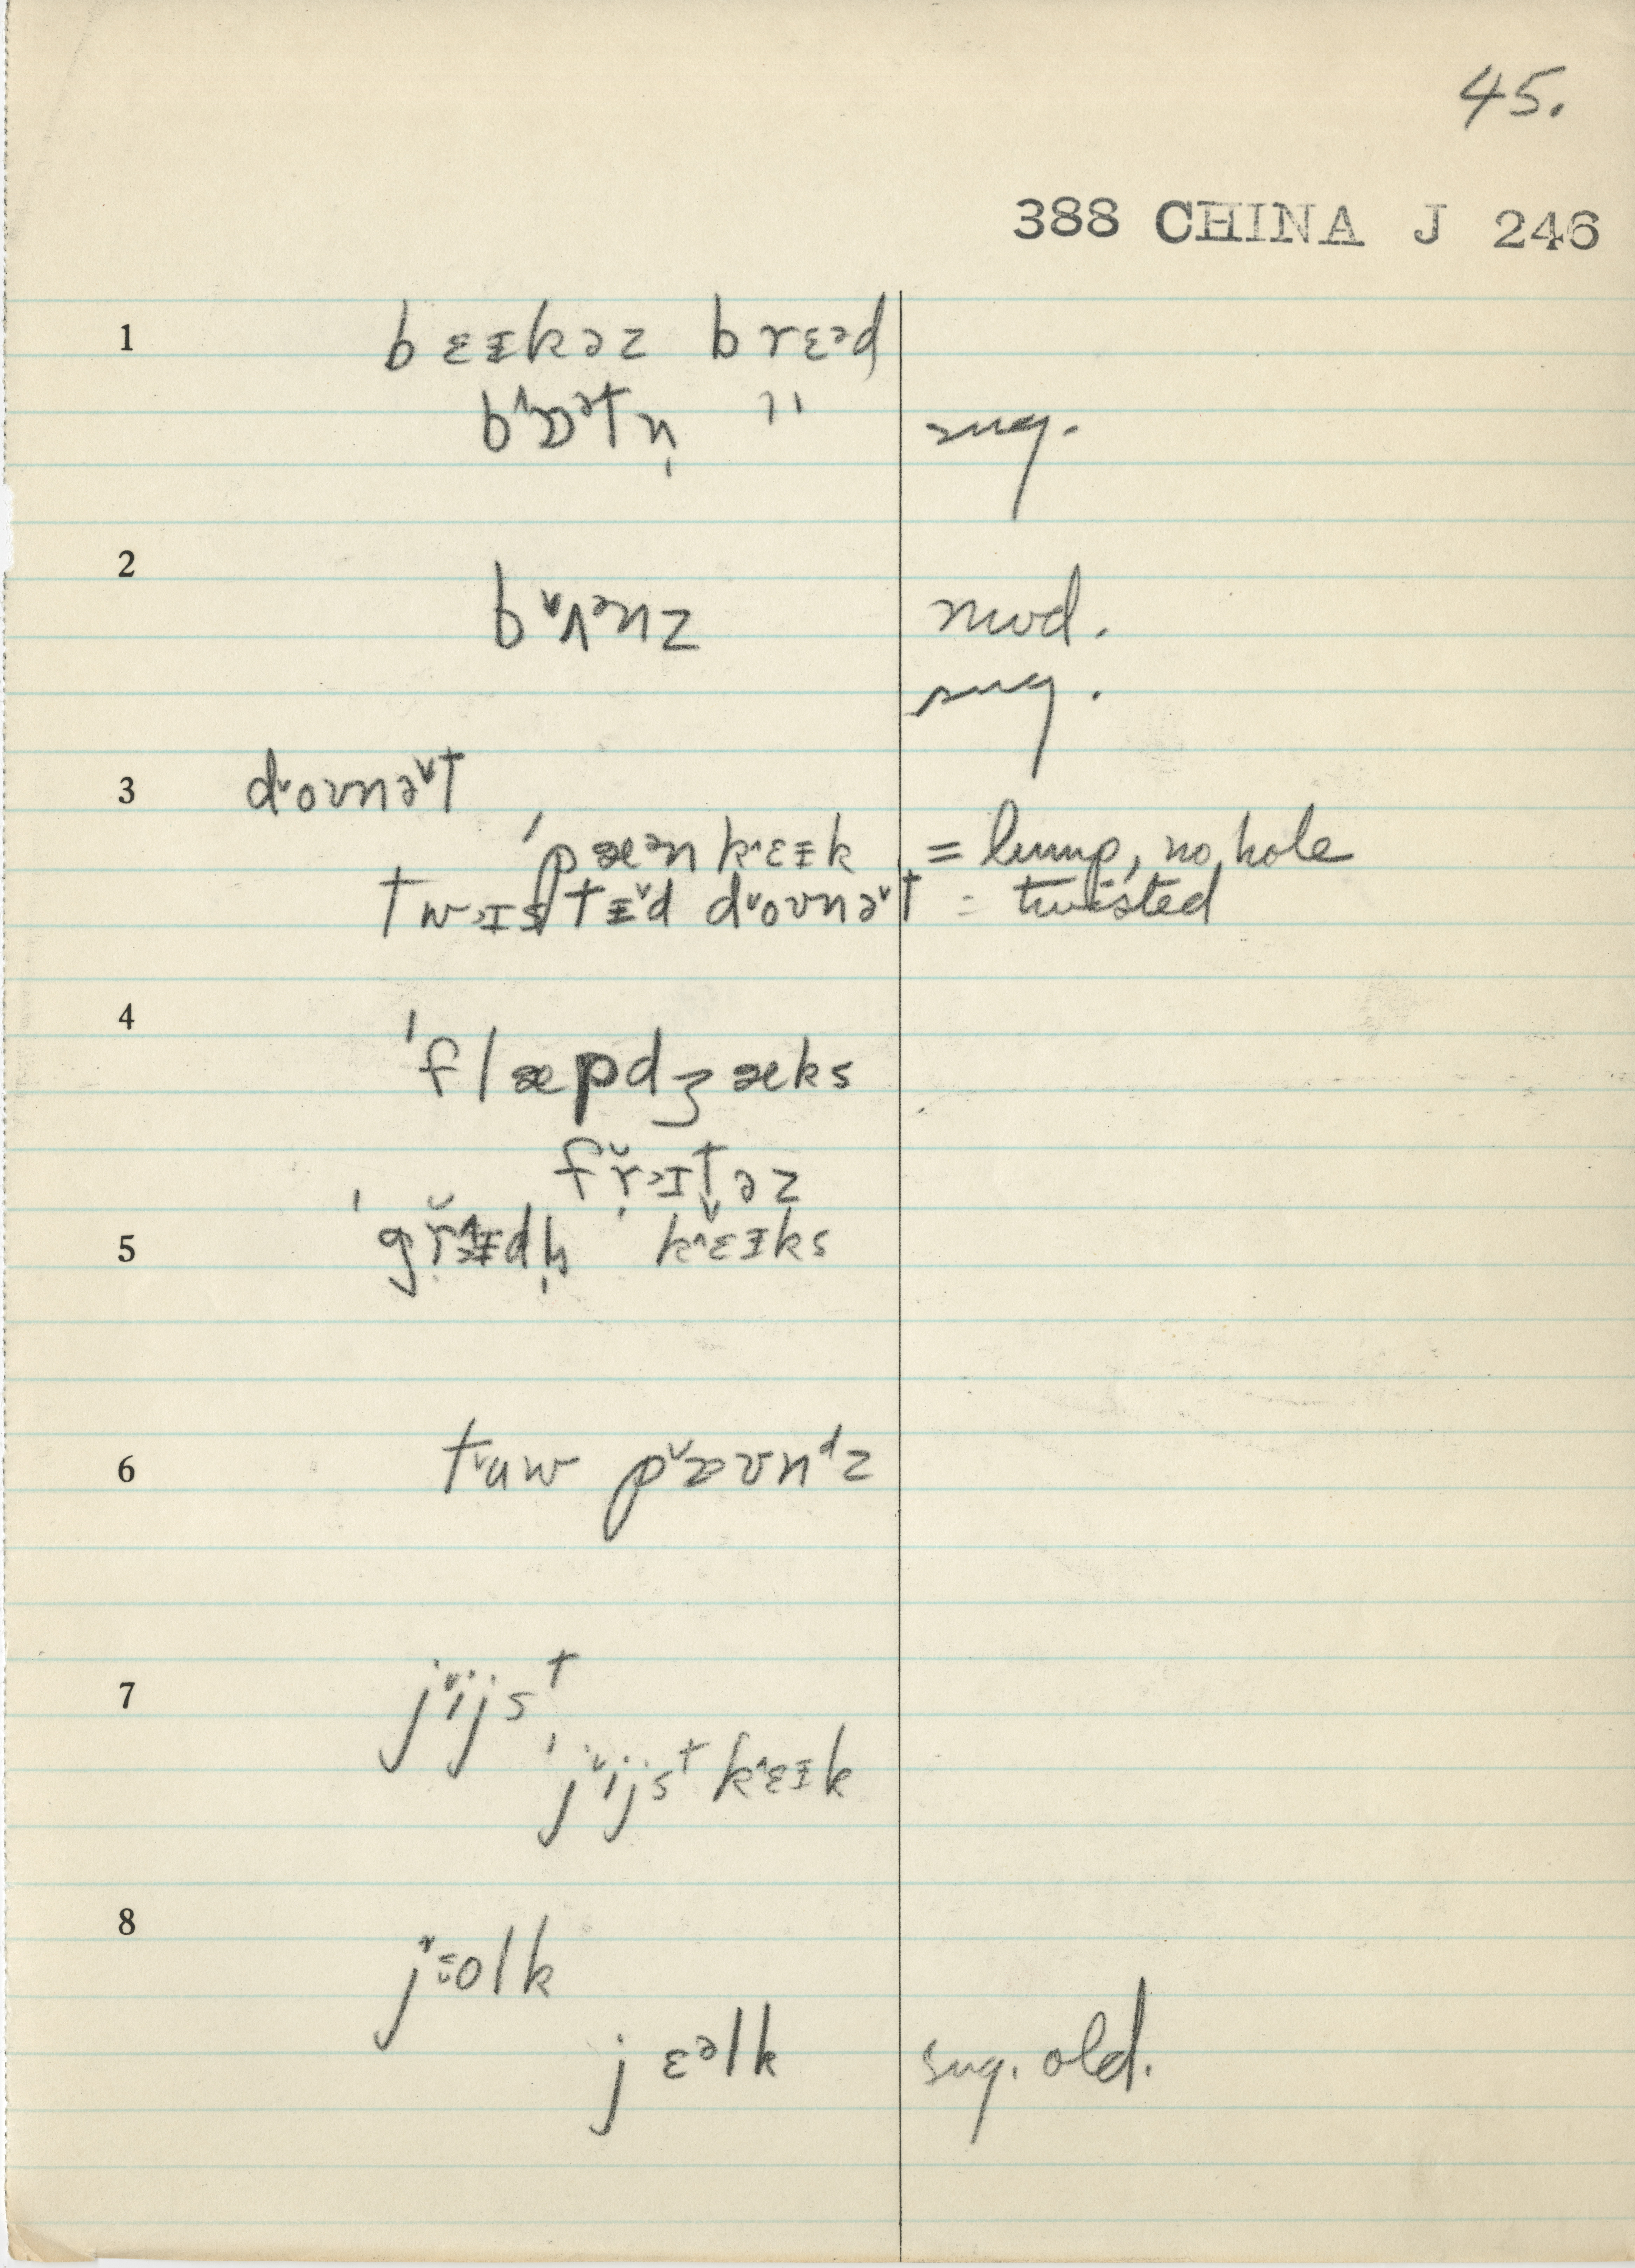 45.
388 CHINA J 246
1 bɛɪkəz brɛᵊd
bɒᵊtn̩ " sug.
2 bʌᵊnz mod.
sug.
3 doʊnət
ˈpæᵊnkɛɪk = lump, no hole
twɪstɪd doʊnət = twisted
4 ˈflæpdʒæks
5 ˈ kɛɪks
6 tuw paʊnᵈz
7 jijsᵗ
ˈjijsᵗkɛɪk
8 jolk
jɛᵊlk sug. old.